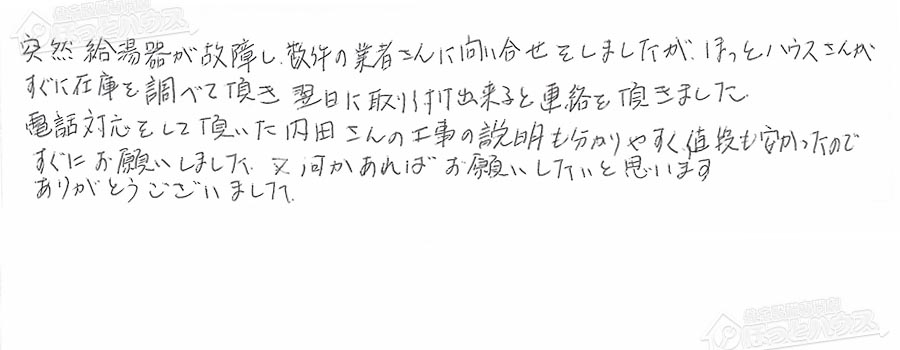 突然給湯器が故障し、数件の業者さんに問い合せをしましたが、ほっとハウスさんが
すぐに在庫を調べて頂き翌日に取り付け出来ると連絡を頂きました。
電話対応をして頂いた内田さんの工事の説明も分かりやすく値段も安かったので
すぐにお願いしました。又何かあればお願いしたいと思います
ありがとうございました。
ほっとハウス
ほっとハウス